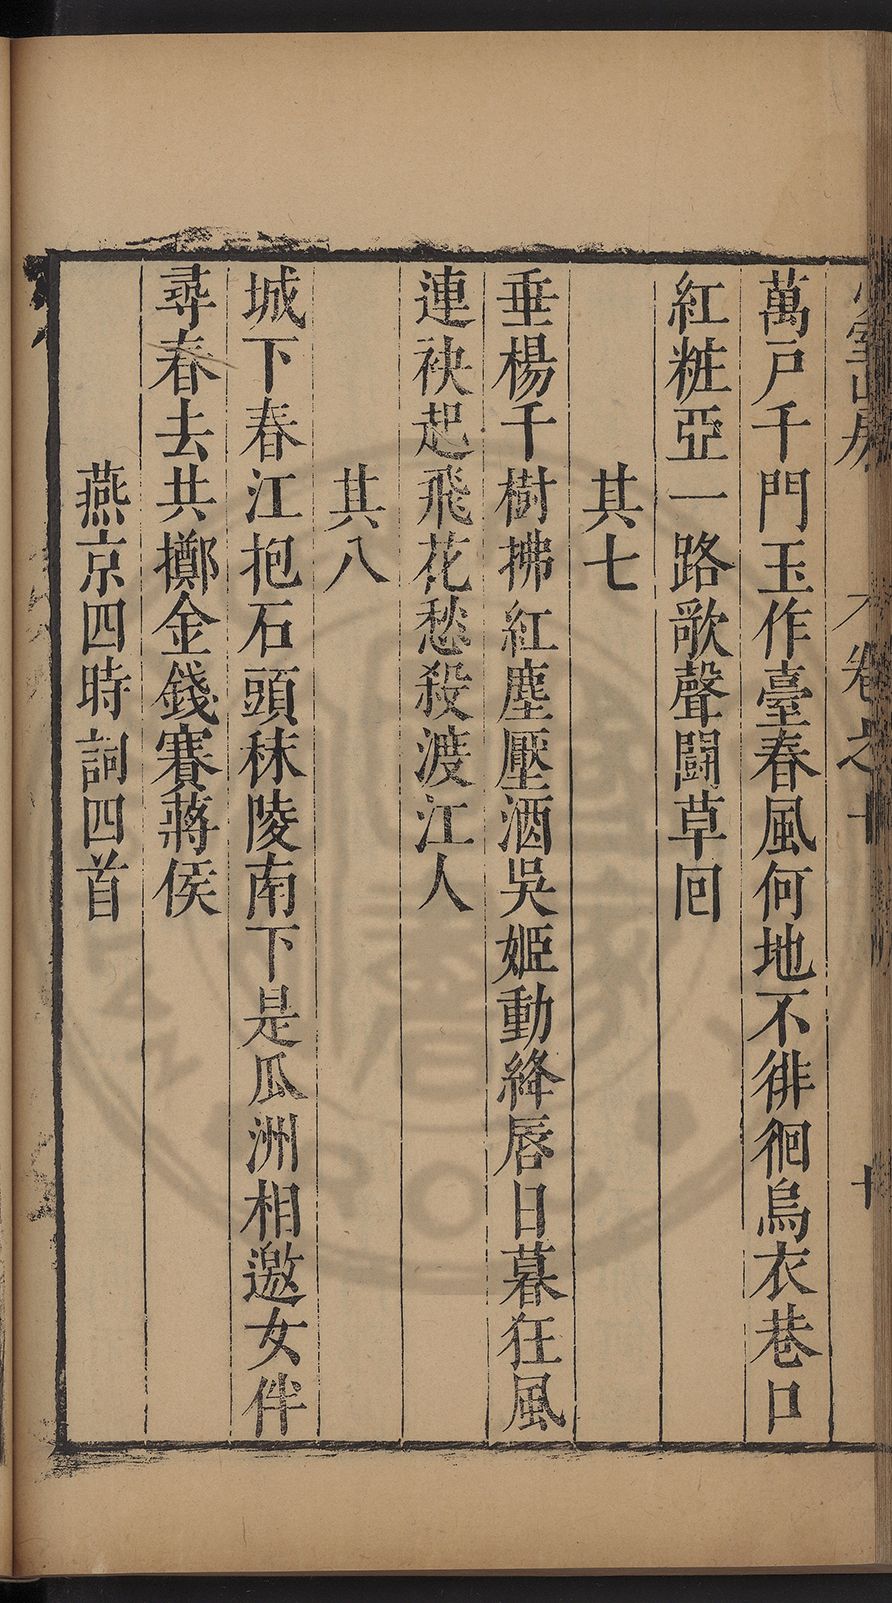 卷之十
十
萬戸千門玉作臺春風何地不徘徊烏衣巷口
紅粧亞一路歌聲鬪草囘
其七
垂楊千樹拂紅塵壓酒吳姬動絳唇日暮狂風
連袂起飛花愁殺渡江人
其八
城下春江抱石頭秣陵南下是瓜洲相邀女伴
尋春去共擲金錢賽蔣侯
燕京四時詞四首